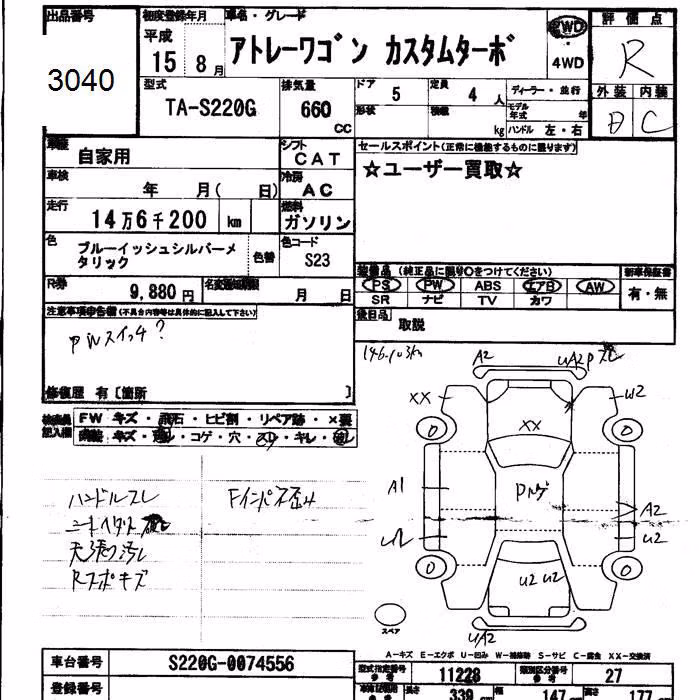 出品番号
3040
初度登録年月
平成
15 8月
車名・グレード
アトレーワゴン カスタムターボ
2WD
・
4WD
評価点
R
外装 内装
C
型式
TA-S220G
排気量
660
CC
ドア
5
形状
定員
4人
積載
kg
ディーラー・並行
モデル年式 年
ハンドル 左・右
車歴
自家用
シフト
CAT
車検
年 月( 日)
冷房
AC
走行
14万6千200 km
燃料
ガソリン
色
ブルーイッシュシルバーメタリック
色替
色コード
S23
R券
9,880円
名変期限
月 日
セールスポイント(正常に機能するものに限ります)
☆ユーザー買取☆
装備品(純正品に限り○をつけてください)
PS PW ABS エアB AW
SR ナビ TV カワ
新車保証書
有・無
後日品
取説
注意事項申告欄(不具合内容等は具体的に記入して下さい)
PWスイッチ?
修復歴 有〔箇所 〕
検査員記入欄
FW キズ・飛石・ヒビ割・リペア跡・×要
内装 キズ・汚レ・コゲ・穴・スレ・キレ・
ハンドルスレ
天張汚レ
Rスポキズ
Fインパネ歪み
146.103km
A2
UA2P
XX
W2
XX
0
0
A1
Pルーゲ
A2
U2
U2
0
0
U2 U2
UA2
スペア
A-キズ E-エクボ U-凹み W-補修跡 S-サビ C-腐食 XX-交換済
車台番号
S220G-0074556
登録番号
型式指定番号
参考
11228
類別区分番号
参考
27
長さ
339
幅
147
高さ
177